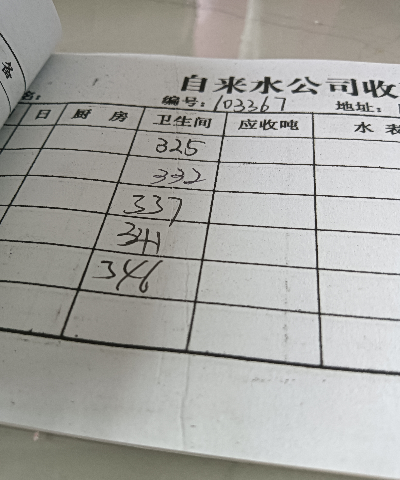 自来水公司收
编号: 103367 地址:
日 厨房 卫生间 应收吨 水
325
332
337
341
346